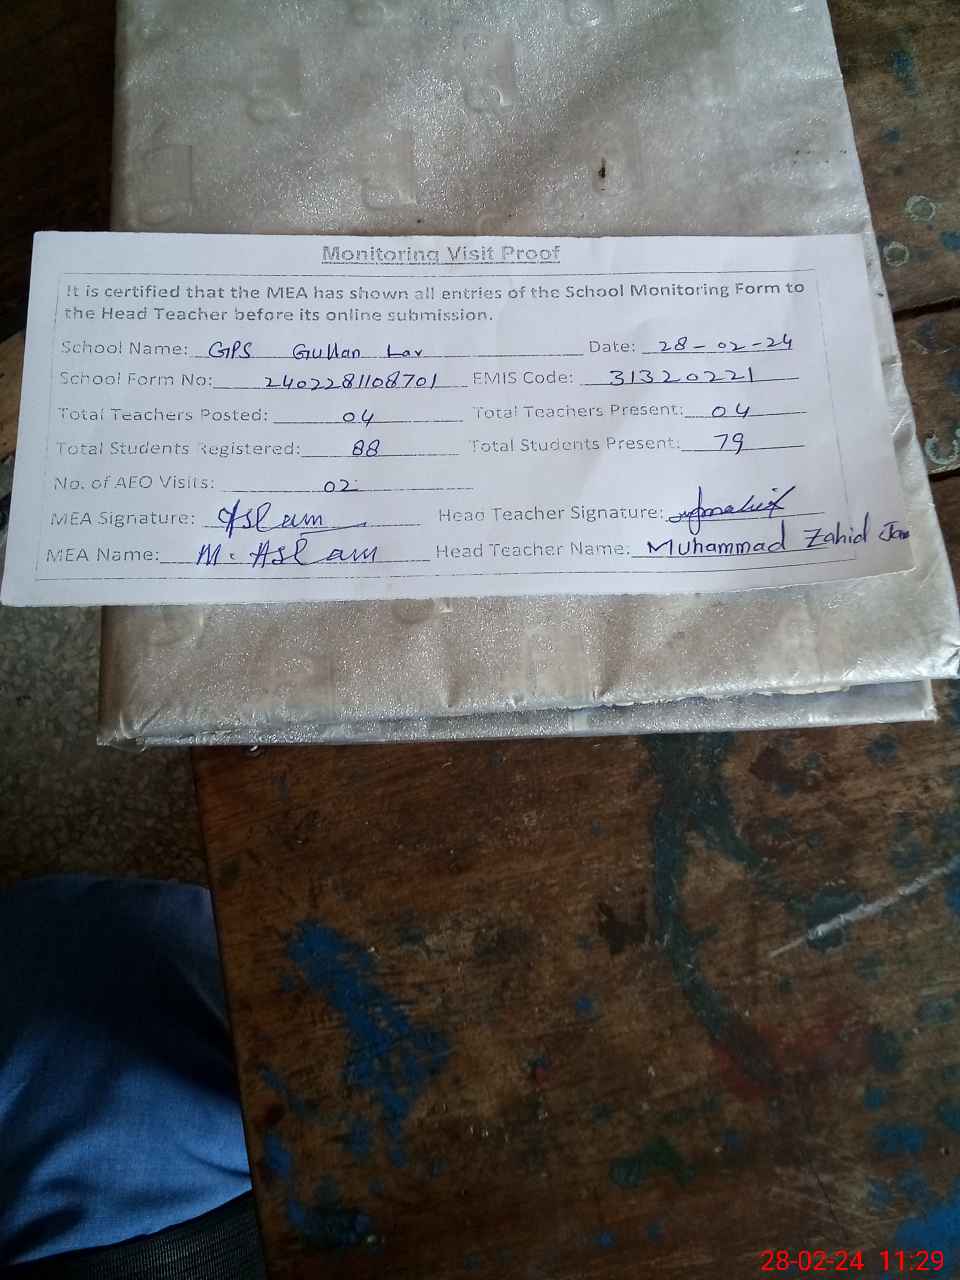 Monitoring Visit Proof
It is certified that the MEA has shown all entries of the School Monitoring Form to
the Head Teacher before its online submission.
School Name: GPS Gullan Lar Date: 28-02-24
School Form No: 2402281108701 EMIS Code: 31320221
Total Teachers Posted: 04 Total Teachers Present: 04
Total Students Registered: 88 Total Students Present: 79
No. of AEO Visits: 02
MEA Signature: Aslam Head Teacher Signature:
MEA Name: M. Aslam Head Teacher Name: Muhammad Zahid Jam
28-02-24 11:29